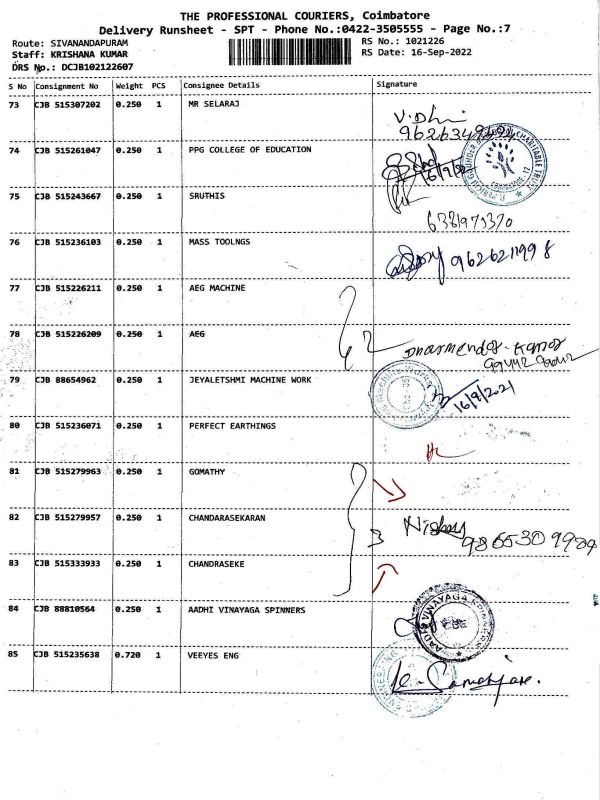 THE PROFESSIONAL COURIERS, Coimbatore
Delivery Runsheet - SPT - Phone No.:0422-3505555 - Page No.:7
Route: SIVANANDAPURAM
RS No.: 1021226
Staff: KRISHANA KUMAR
RS Date: 16-Sep-2022
DRS No.: DCJB102122607
S No Consignment No Weight PCS Consignee Details Signature
73 CJB 515307202 0.250 1 MR SELARAJ
74 CJB 515261047 0.250 1 PPG COLLEGE OF EDUCATION
75 CJB 515243667 0.250 1 SRUTHIS
6381973370
76 CJB 515236103 0.250 1 MASS TOOLNGS
9626211998
77 CJB 515226211 0.250 1 AEG MACHINE
78 CJB 515226209 0.250 1 AEG
2
79 CJB 88654962 0.250 1 JEYALETSHMI MACHINE WORK
16/9/2021
80 CJB 515236071 0.250 1 PERFECT EARTHINGS
81 CJB 515279963 0.250 1 GOMATHY
82 CJB 515279957 0.250 1 CHANDARASEKARAN
3
83 CJB 515333933 0.250 1 CHANDRASEKE
84 CJB 88810564 0.250 1 AADHI VINAYAGA SPINNERS
AADHI VINAYAGA SPINNERS
CBE
85 CJB 515235638 0.720 1 VEEYES ENG